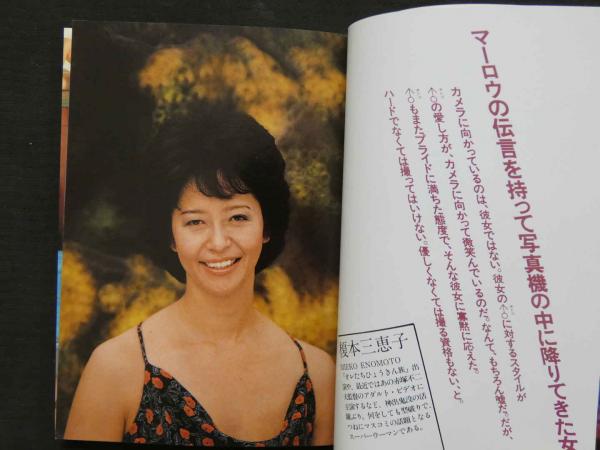 マーロウの伝言を持って写真機の中に降りてきた女
カメラに向かっているのは、彼女ではない。彼女の♂に対するスタイルが
♂の愛し方が、カメラに向かって微笑んでいるのだ。なんて、もちろん嘘だ。だが、
♂もまたプライドに満ちた態度で、そんな彼女に寡黙に応えた。
ハードでなくては撮ってはいけない。優しくなくては撮る資格もない、と。
榎本三恵子
MIEKO ENOMOTO
「オレたちひょうきん族」出
演や、最近ではあの赤塚不二
夫監督のアダルト・ビデオに
主演するなど、神出鬼没の活
躍ぶり。何をしても型破りで、
つねにマスコミの話題となる
スーパーウーマンである。